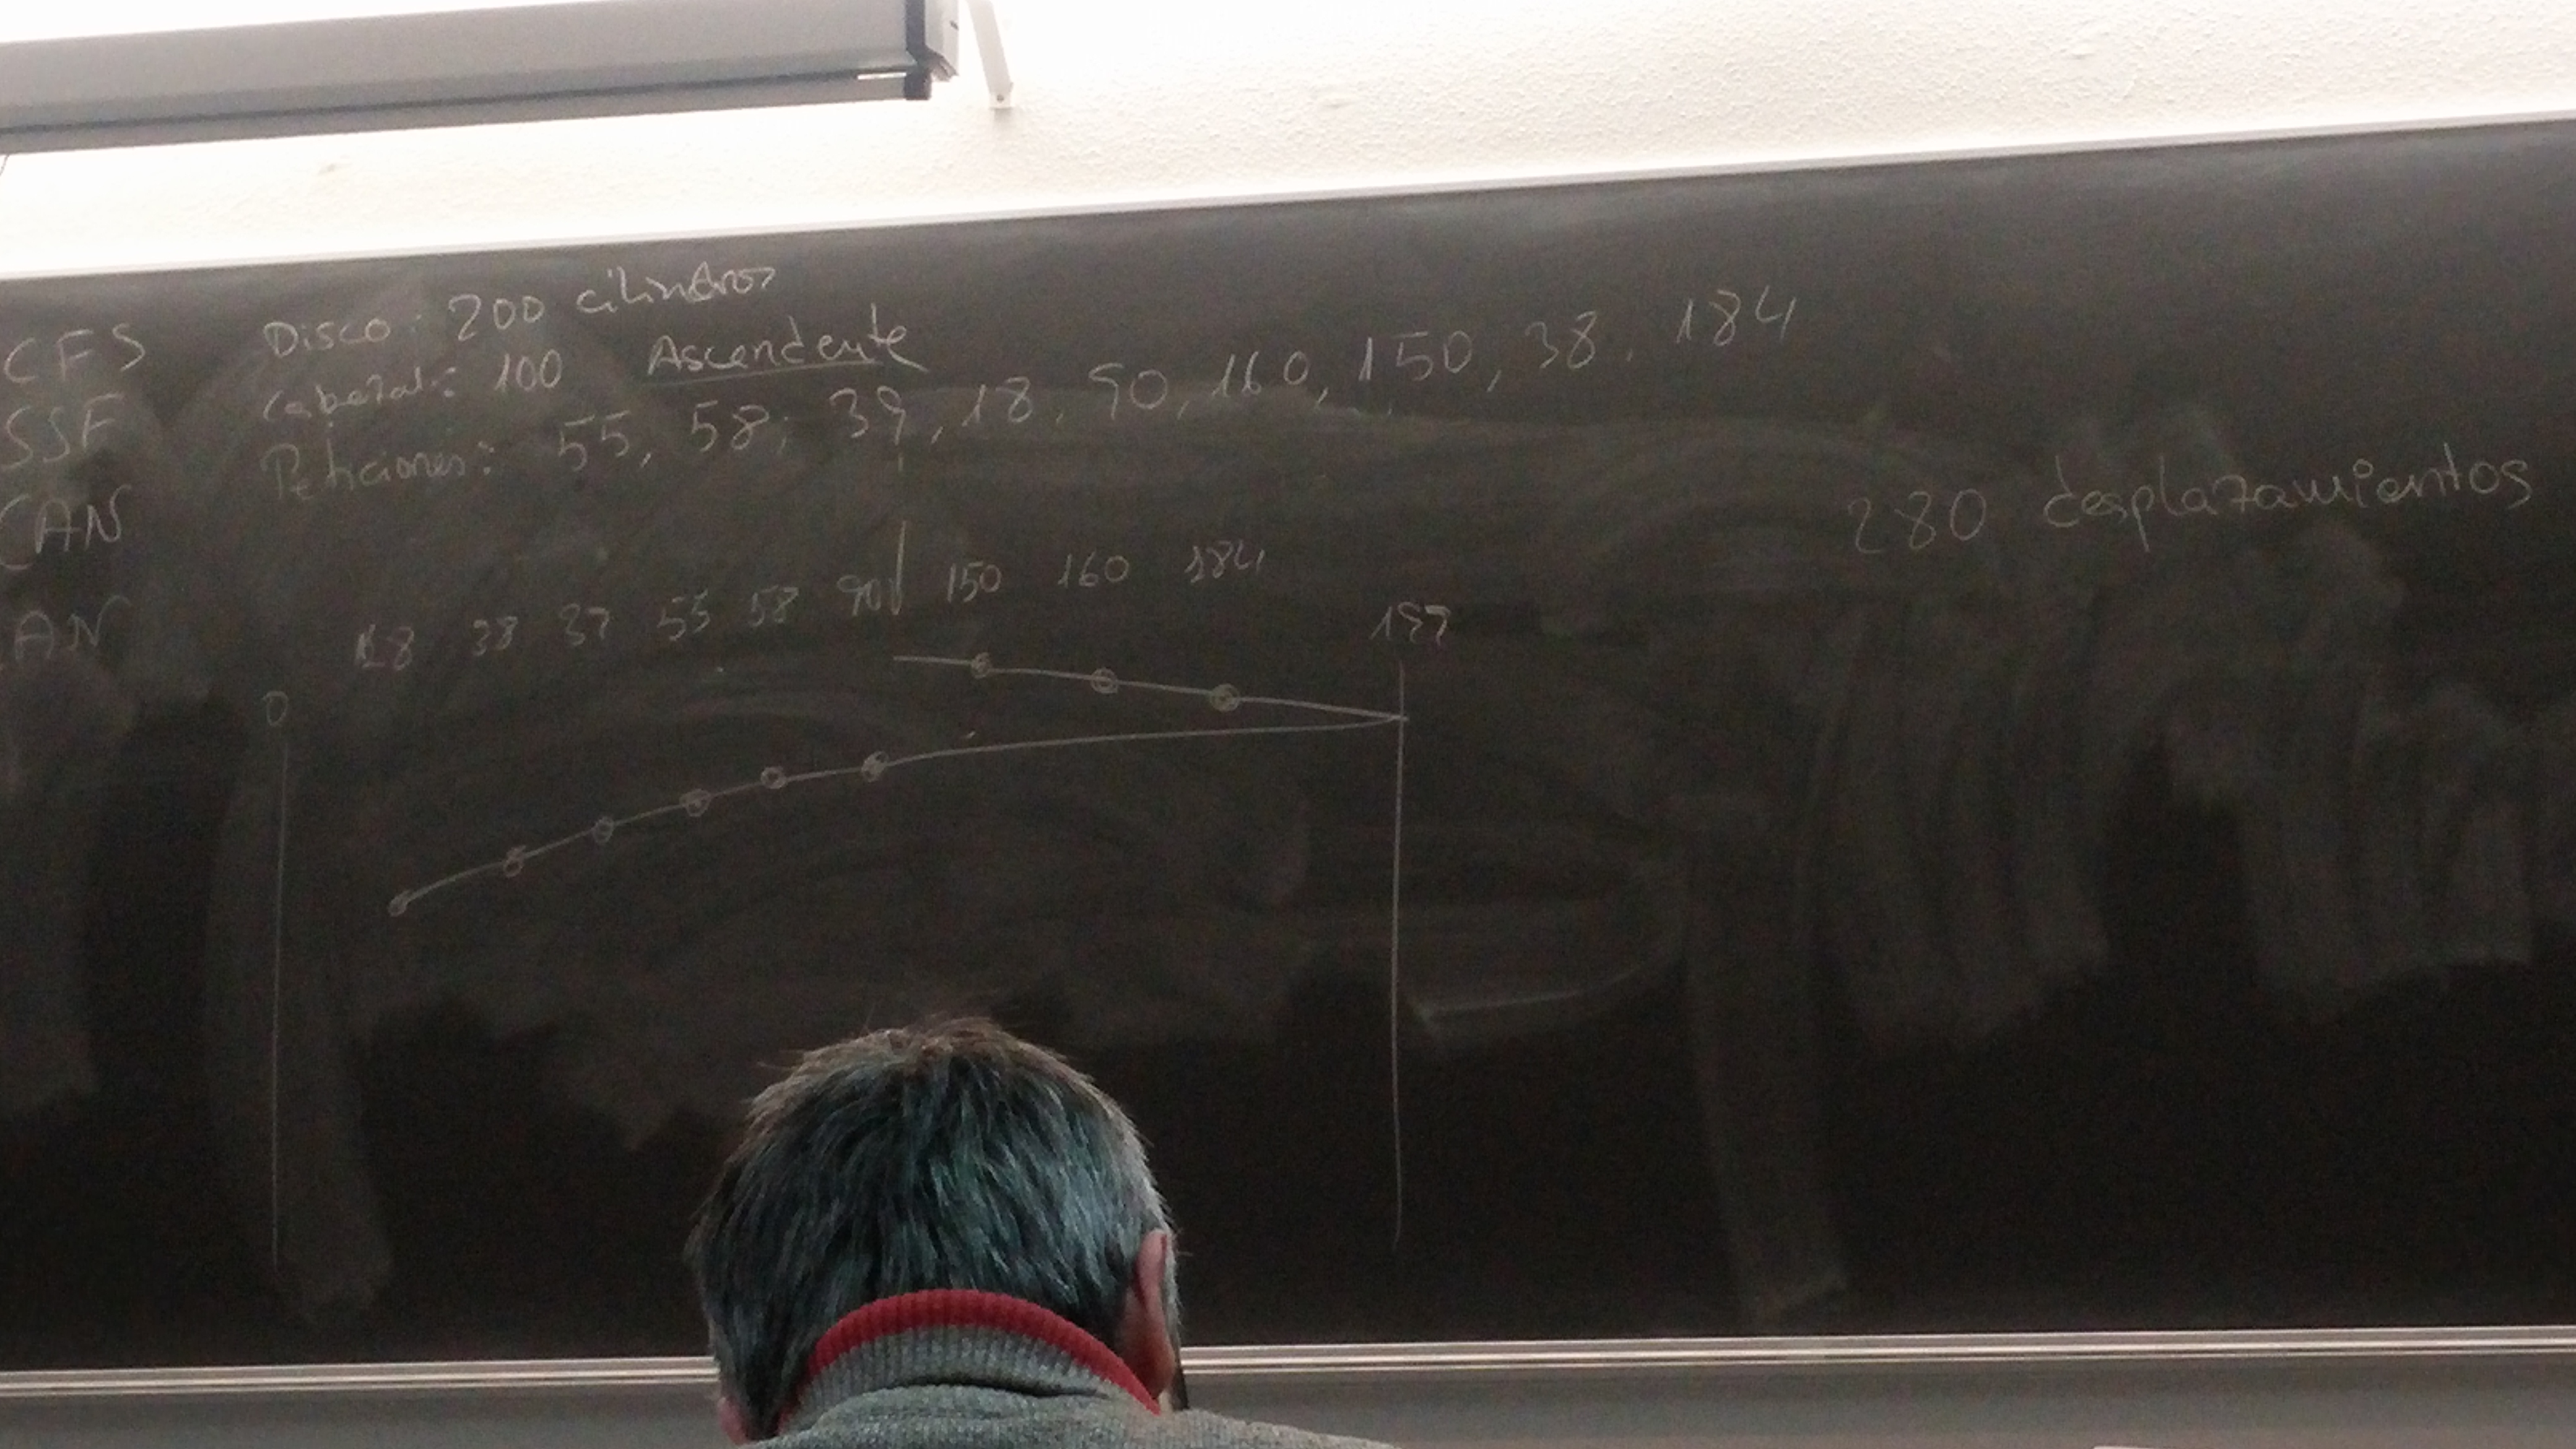 CFS
SSF
CAN
AN
Disco: 200 cilindros
Cabezal: 100 Ascendente
Peticiones: 55, 58, 39, 18, 90, 160, 150, 38, 184
280 desplazamientos
18 38 39 55 58 90 150 160 184
0
199